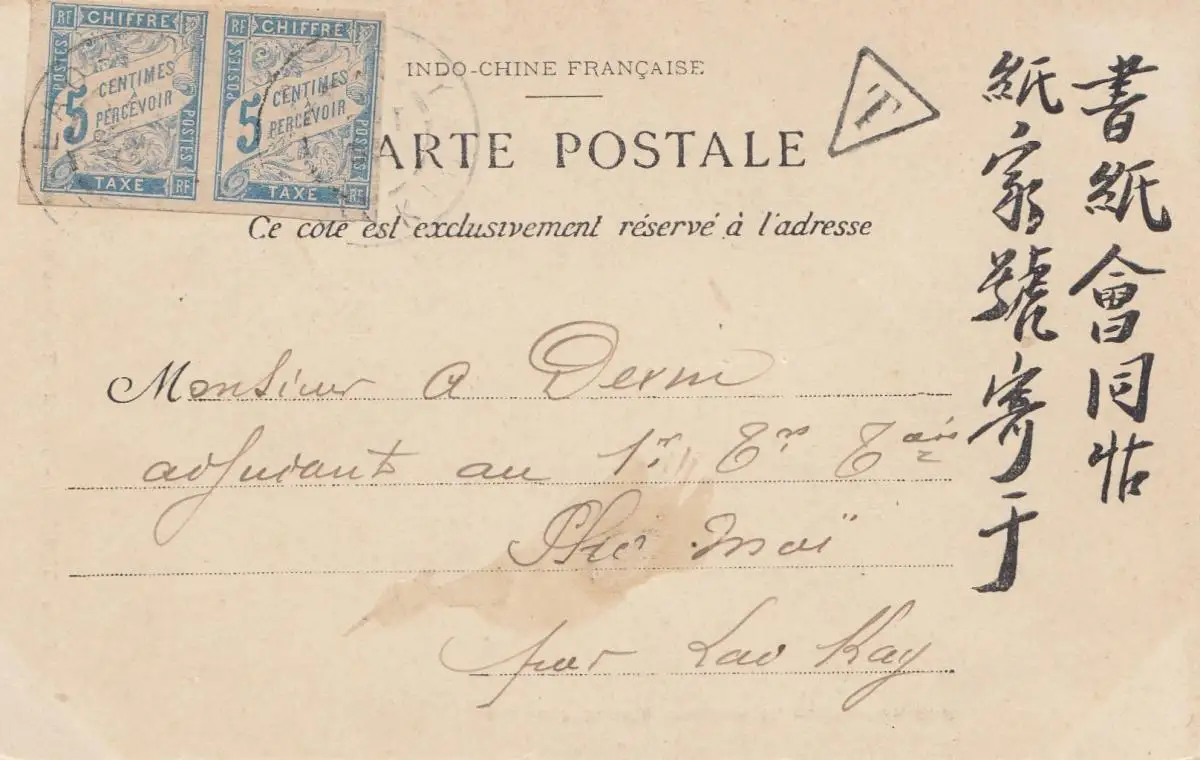 RF CHIFFRE RF CHIFFRE
POSTES 5 CENTIMES À PERCEVOIR POSTES
POSTES 5 CENTIMES À PERCEVOIR POSTES
TAXE RF TAXE RF
INDO-CHINE FRANÇAISE
T
ARTE POSTALE
Ce côté est exclusivement réservé à l'adresse
Monsieur A
adjudant au 1er
Pho Moï
par Lao Kay
書紙會同帖
紙家號寄于